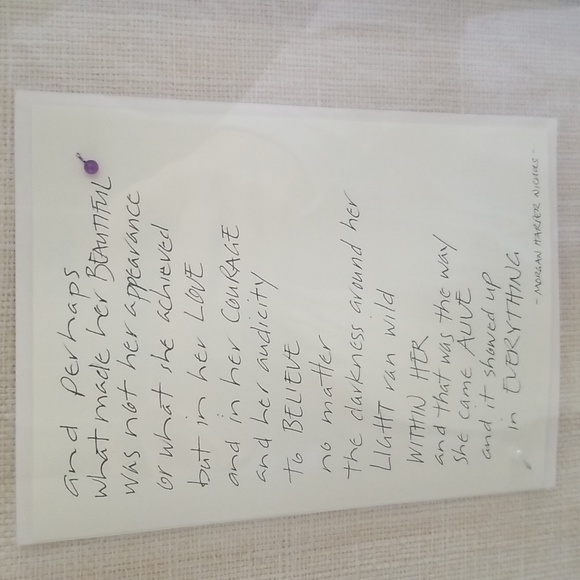 and Perhaps
what made her BEAUTIFUL
was not her appearance
or what she achieved
but in her LOVE
and in her COURAGE
and her audicity
to BELIEVE
no matter
the darkness around her
LIGHT ran wild
WITHIN HER
and that was the way
she came ALIVE
and it showed up
in EVERYTHING
- MORGAN HARPER NICHOLS -